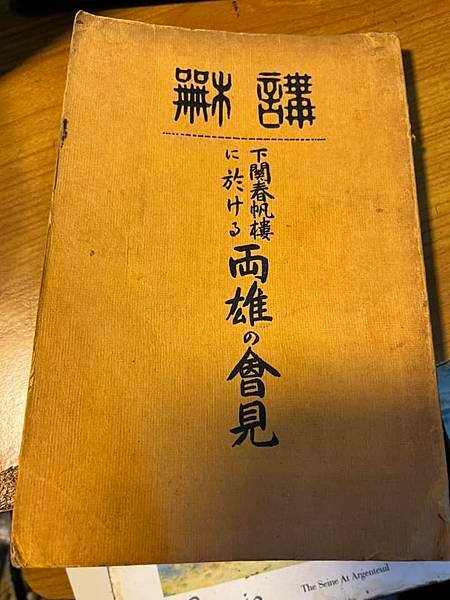 講龢
下關春帆樓
に於ける
両雄の會見
The Seine At Argenteuil